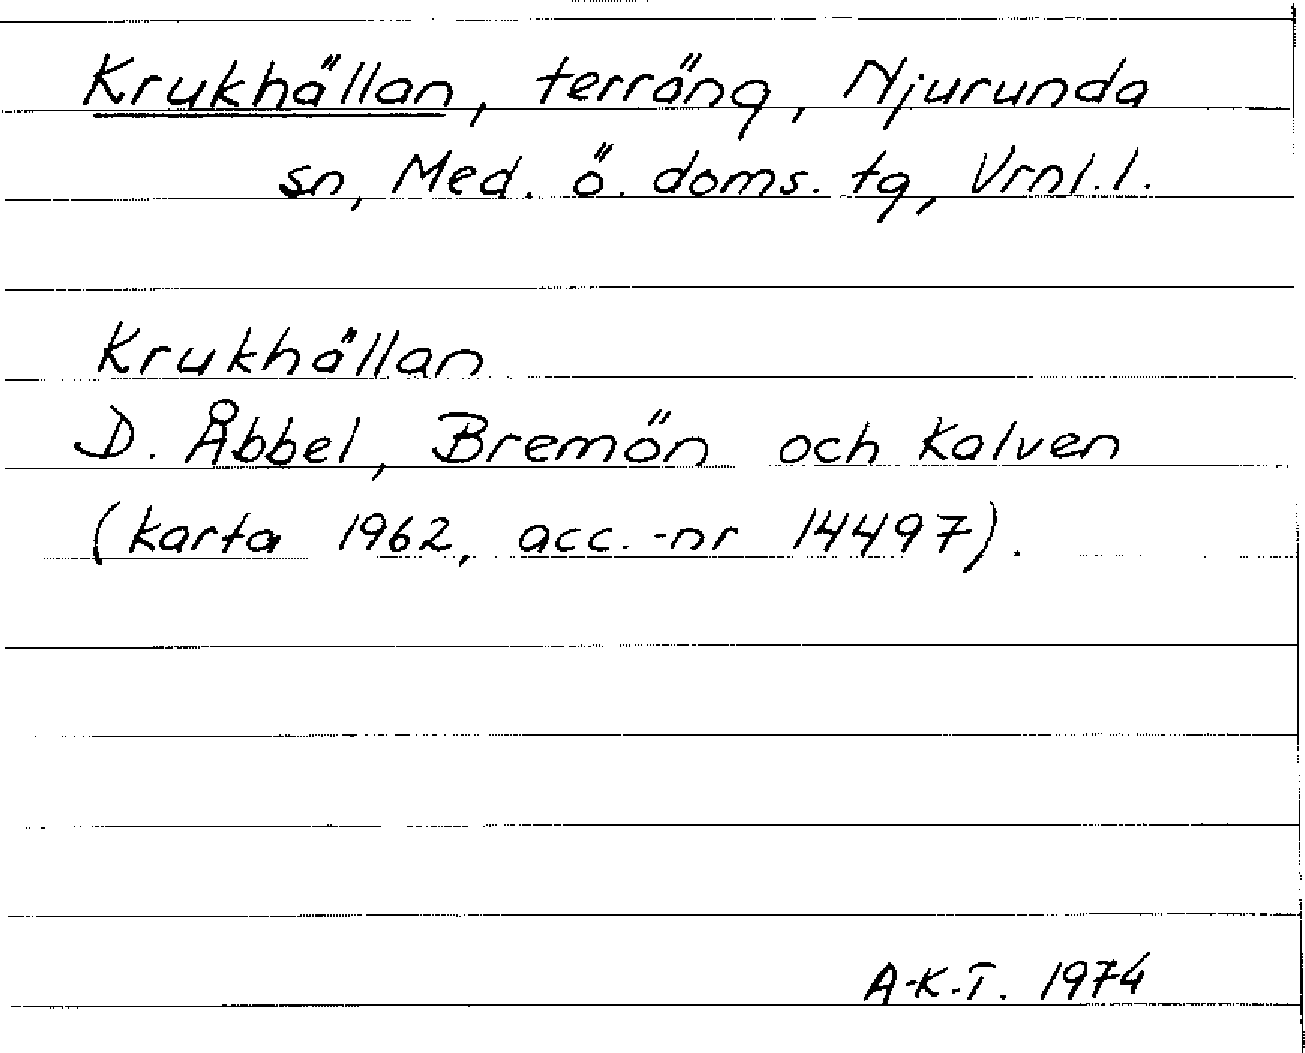 Krukhällan, terräng, Njurunda
sn, Med. ö. doms. tg, Vrnl.l.
Krukhällan
D. Åbbel, Bremön och Kalven
(karta 1962, acc.-nr 14497).
A-K.T. 1974